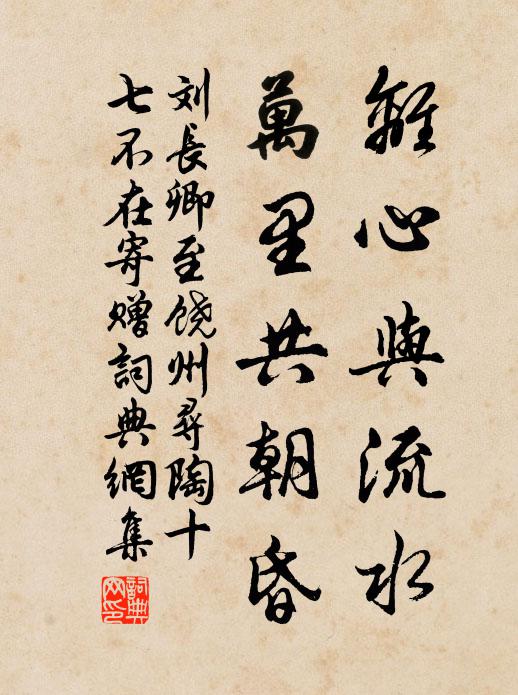 離心與流水
萬里共朝昏
刘長卿至饶州尋陶十
七不在寄赠詞典網集
詞典网印